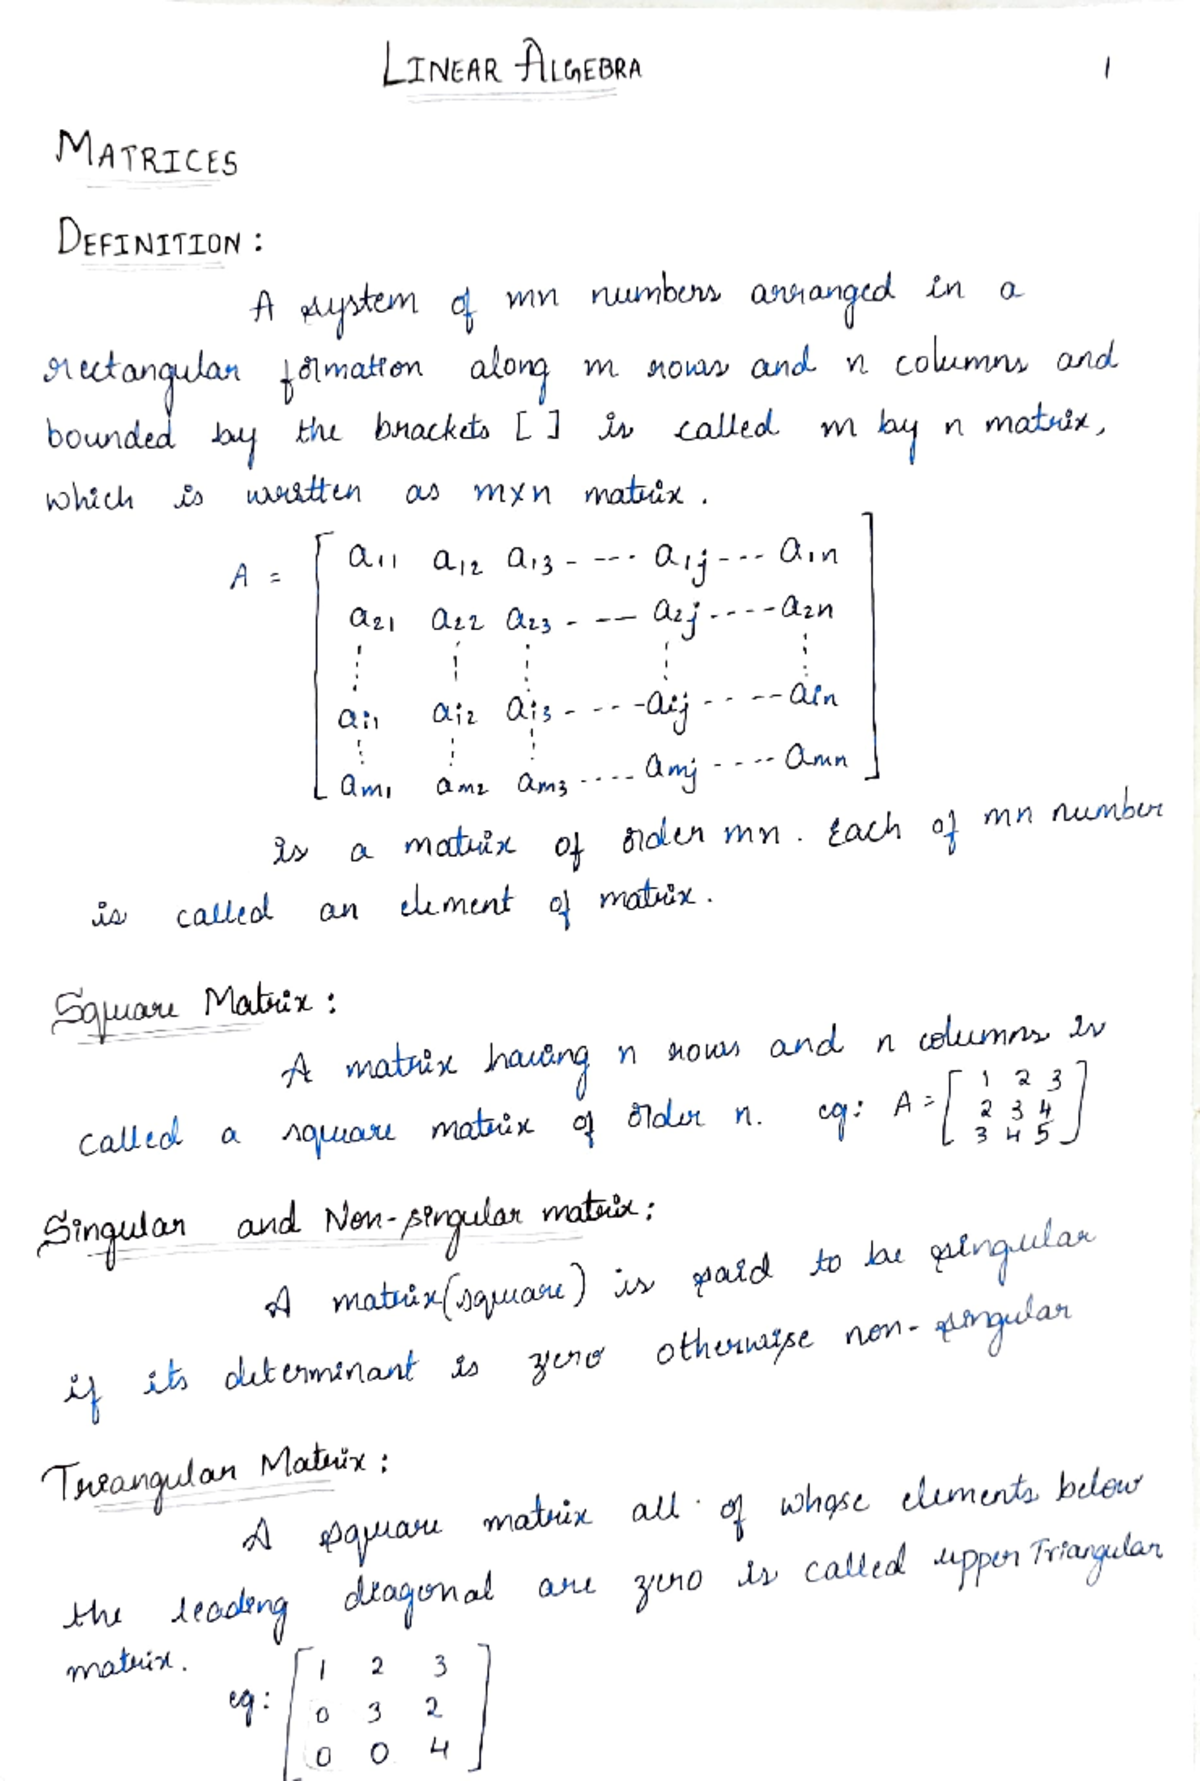 LINEAR ALGEBRA 1
MATRICES
DEFINITION :
A system of mn numbers arranged in a
rectangular formation along m rows and n columns and
bounded by the brackets [ ] is called m by n matrix,
which is written as m×n matrix.
A = [ a11 a12 a13 - --- a1j --- a1n
a21 a22 a23 - -- a2j ---- a2n
ai1 ai2 ai3 - --- aij ---- ain
am1 am2 am3 ---- amj ---- amn ]
is a matrix of order mn. Each of mn number
is called an element of matrix.
Square Matrix :
A matrix having n rows and n columns is
called a square matrix of order n. eg: A = [ 1 2 3
2 3 4
3 4 5 ]
Singular and Non-singular matrix :
A matrix (square) is said to be singular
if its determinant is zero otherwise non-singular
Triangular Matrix :
A square matrix all of whose elements below
the leading diagonal are zero is called upper Triangular
matrix.
eg: [ 1 2 3
0 3 2
0 0 4 ]